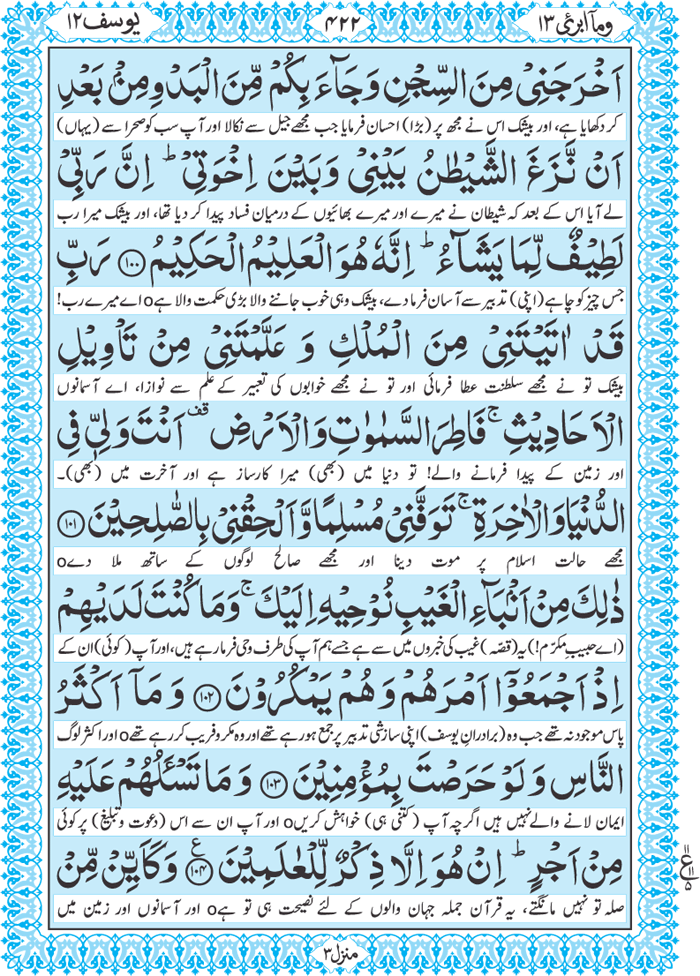 وما ابرئ ۱۳
۴۲۲
یوسف ۱۲
اَخْرَجَنِیْ مِنَ السِّجْنِ وَ جَآءَ بِكُمْ مِّنَ الْبَدْوِ مِنْۢ بَعْدِ
کر دکھایا ہے، اور بیشک اس نے مجھ پر (بڑا) احسان فرمایا جب مجھے جیل سے نکالا اور آپ سب کو صحرا سے (یہاں)
اَنْ نَّزَغَ الشَّیْطٰنُ بَیْنِیْ وَ بَیْنَ اِخْوَتِیْ ؕ اِنَّ رَبِّیْ
لے آیا اس کے بعد کہ شیطان نے میرے اور میرے بھائیوں کے درمیان فساد پیدا کر دیا تھا، اور بیشک میرا رب
لَطِیْفٌ لِّمَا یَشَآءُ ؕ اِنَّهٗ هُوَ الْعَلِیْمُ الْحَكِیْمُ ﴿۱۰۰﴾ رَبِّ
جس چیز کو چاہے (اپنی) تدبیر سے آسان فرما دے، بیشک وہی خوب جاننے والا بڑی حکمت والا ہےo اے میرے رب!
قَدْ اٰتَیْتَنِیْ مِنَ الْمُلْكِ وَ عَلَّمْتَنِیْ مِنْ تَاْوِیْلِ
بیشک تو نے مجھے سلطنت عطا فرمائی اور تو نے مجھے خوابوں کی تعبیر کے علم سے نوازا، اے آسمانوں
الْاَحَادِیْثِ ۚ فَاطِرَ السَّمٰوٰتِ وَ الْاَرْضِ ۫ اَنْتَ وَلِیّٖ فِی
اور زمین کے پیدا فرمانے والے! تو دنیا میں (بھی) میرا کارساز ہے اور آخرت میں (بھی)۔
الدُّنْیَا وَ الْاٰخِرَةِ ۚ تَوَفَّنِیْ مُسْلِمًا وَّ اَلْحِقْنِیْ بِالصّٰلِحِیْنَ ﴿۱۰۱﴾
مجھے حالت اسلام پر موت دینا اور مجھے صالح لوگوں کے ساتھ ملا دےo
ذٰلِكَ مِنْ اَنْۢبَآءِ الْغَیْبِ نُوْحِیْهِ اِلَیْكَ ۚ وَ مَا كُنْتَ لَدَیْهِمْ
(اے حبیبِ مکرّم!) یہ (قصّہ) غیب کی خبروں میں سے ہے جسے ہم آپ کی طرف وحی فرما رہے ہیں، اور آپ (کوئی) ان کے
اِذْ اَجْمَعُوْۤا اَمْرَهُمْ وَ هُمْ یَمْكُرُوْنَ ﴿۱۰۲﴾ وَ مَاۤ اَكْثَرُ
پاس موجود نہ تھے جب وہ (برادرانِ یوسف) اپنی سازشی تدبیر پر جمع ہو رہے تھے اور وہ مکر و فریب کر رہے تھےo اور اکثر لوگ
النَّاسِ وَ لَوْ حَرَصْتَ بِمُؤْمِنِیْنَ ﴿۱۰۳﴾ وَ مَا تَسْـَٔلُهُمْ عَلَیْهِ
ایمان لانے والے نہیں ہیں اگرچہ آپ (کتنی ہی) خواہش کریںo اور آپ ان سے اس (دعوت و تبلیغ) پر کوئی
مِنْ اَجْرٍ ؕ اِنْ هُوَ اِلَّا ذِكْرٌ لِّلْعٰلَمِیْنَ ﴿۱۰۴﴾ ع وَ كَاَیِّنْ مِّنْ
صلہ تو نہیں مانگتے، یہ قرآن جملہ جہان والوں کے لئے نصیحت ہی تو ہےo اور آسمانوں اور زمین میں
منزل ۳